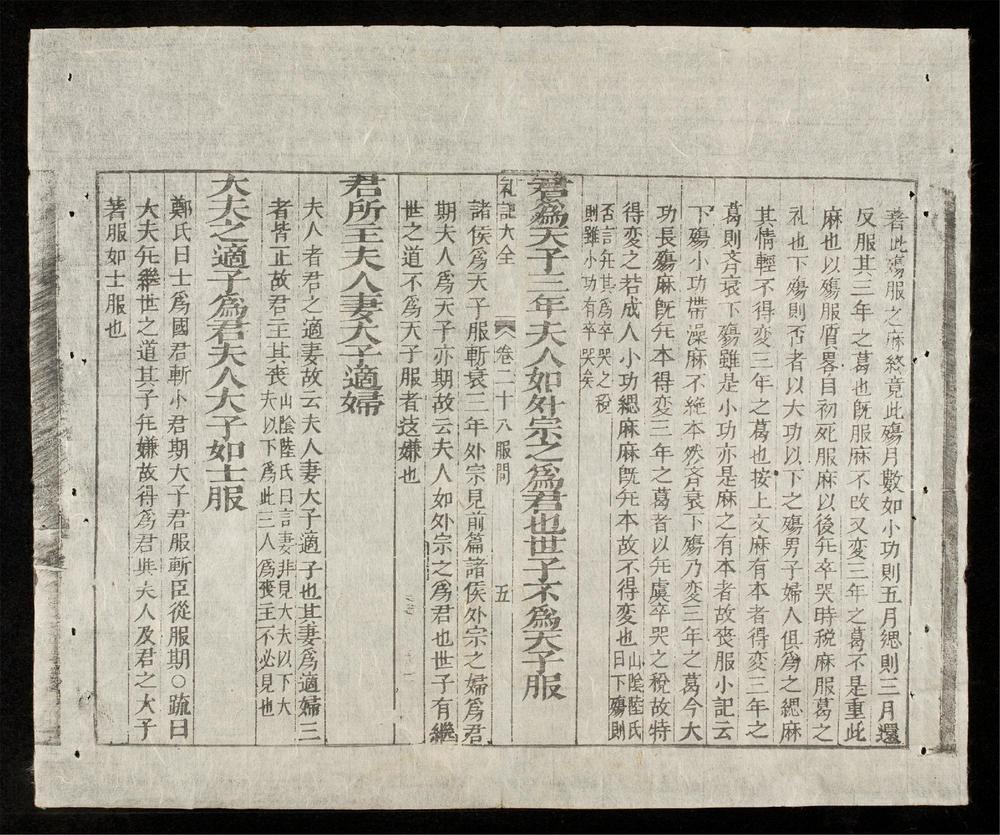 著此殤服之麻終竟此殤月數如小功則五月緦則三月還
反服其三年之葛也旣服麻不改又変三年之葛不是重此
麻也以殤服質畧自初死服麻以後旡卒哭時税麻服葛之
礼也下殤則否者以大功以下之殤男子婦人俱為之緦麻
其情輕不得変三年之葛也按上文麻有本者得変三年之
葛則齐衰下殤雖是小功亦是麻之有本者故喪服小記云
下殤小功帶澡麻不絶本然齐衰下殤乃変三年之葛今大
功長殤麻旣旡本得変三年之葛者以旡虞卒哭之税故特
得変之若成人小功緦麻麻旣旡本故不得変也山陰陸氏
曰下殤則
否言旡其為卒哭之税
則雖小功有卒哭矣
君爲天子三年夫人如外宗之爲君也世子不爲天子服
礼記大全 卷二十八服問 五
諸侯爲天子服斬衰三年外宗見前篇諸侯外宗之婦爲君
期夫人爲天子亦期故云夫人如外宗之爲君也世子有繼
世之道不爲天子服者𨗿嫌也
君所主夫人妻大子適婦
夫人者君之適妻故云夫人妻大子適子也其妻爲適婦三
者皆正故君主其喪山陰陸氏曰言妻非見大夫以下大
夫以下爲此三人爲喪主不必見也
大夫之適子爲君夫人大子如士服
鄭氏曰士爲國君斬小君期大子君服斬臣從服期○疏曰
大夫旡繼世之道其子旡嫌故得爲君與夫人及君之大子
著服如士服也